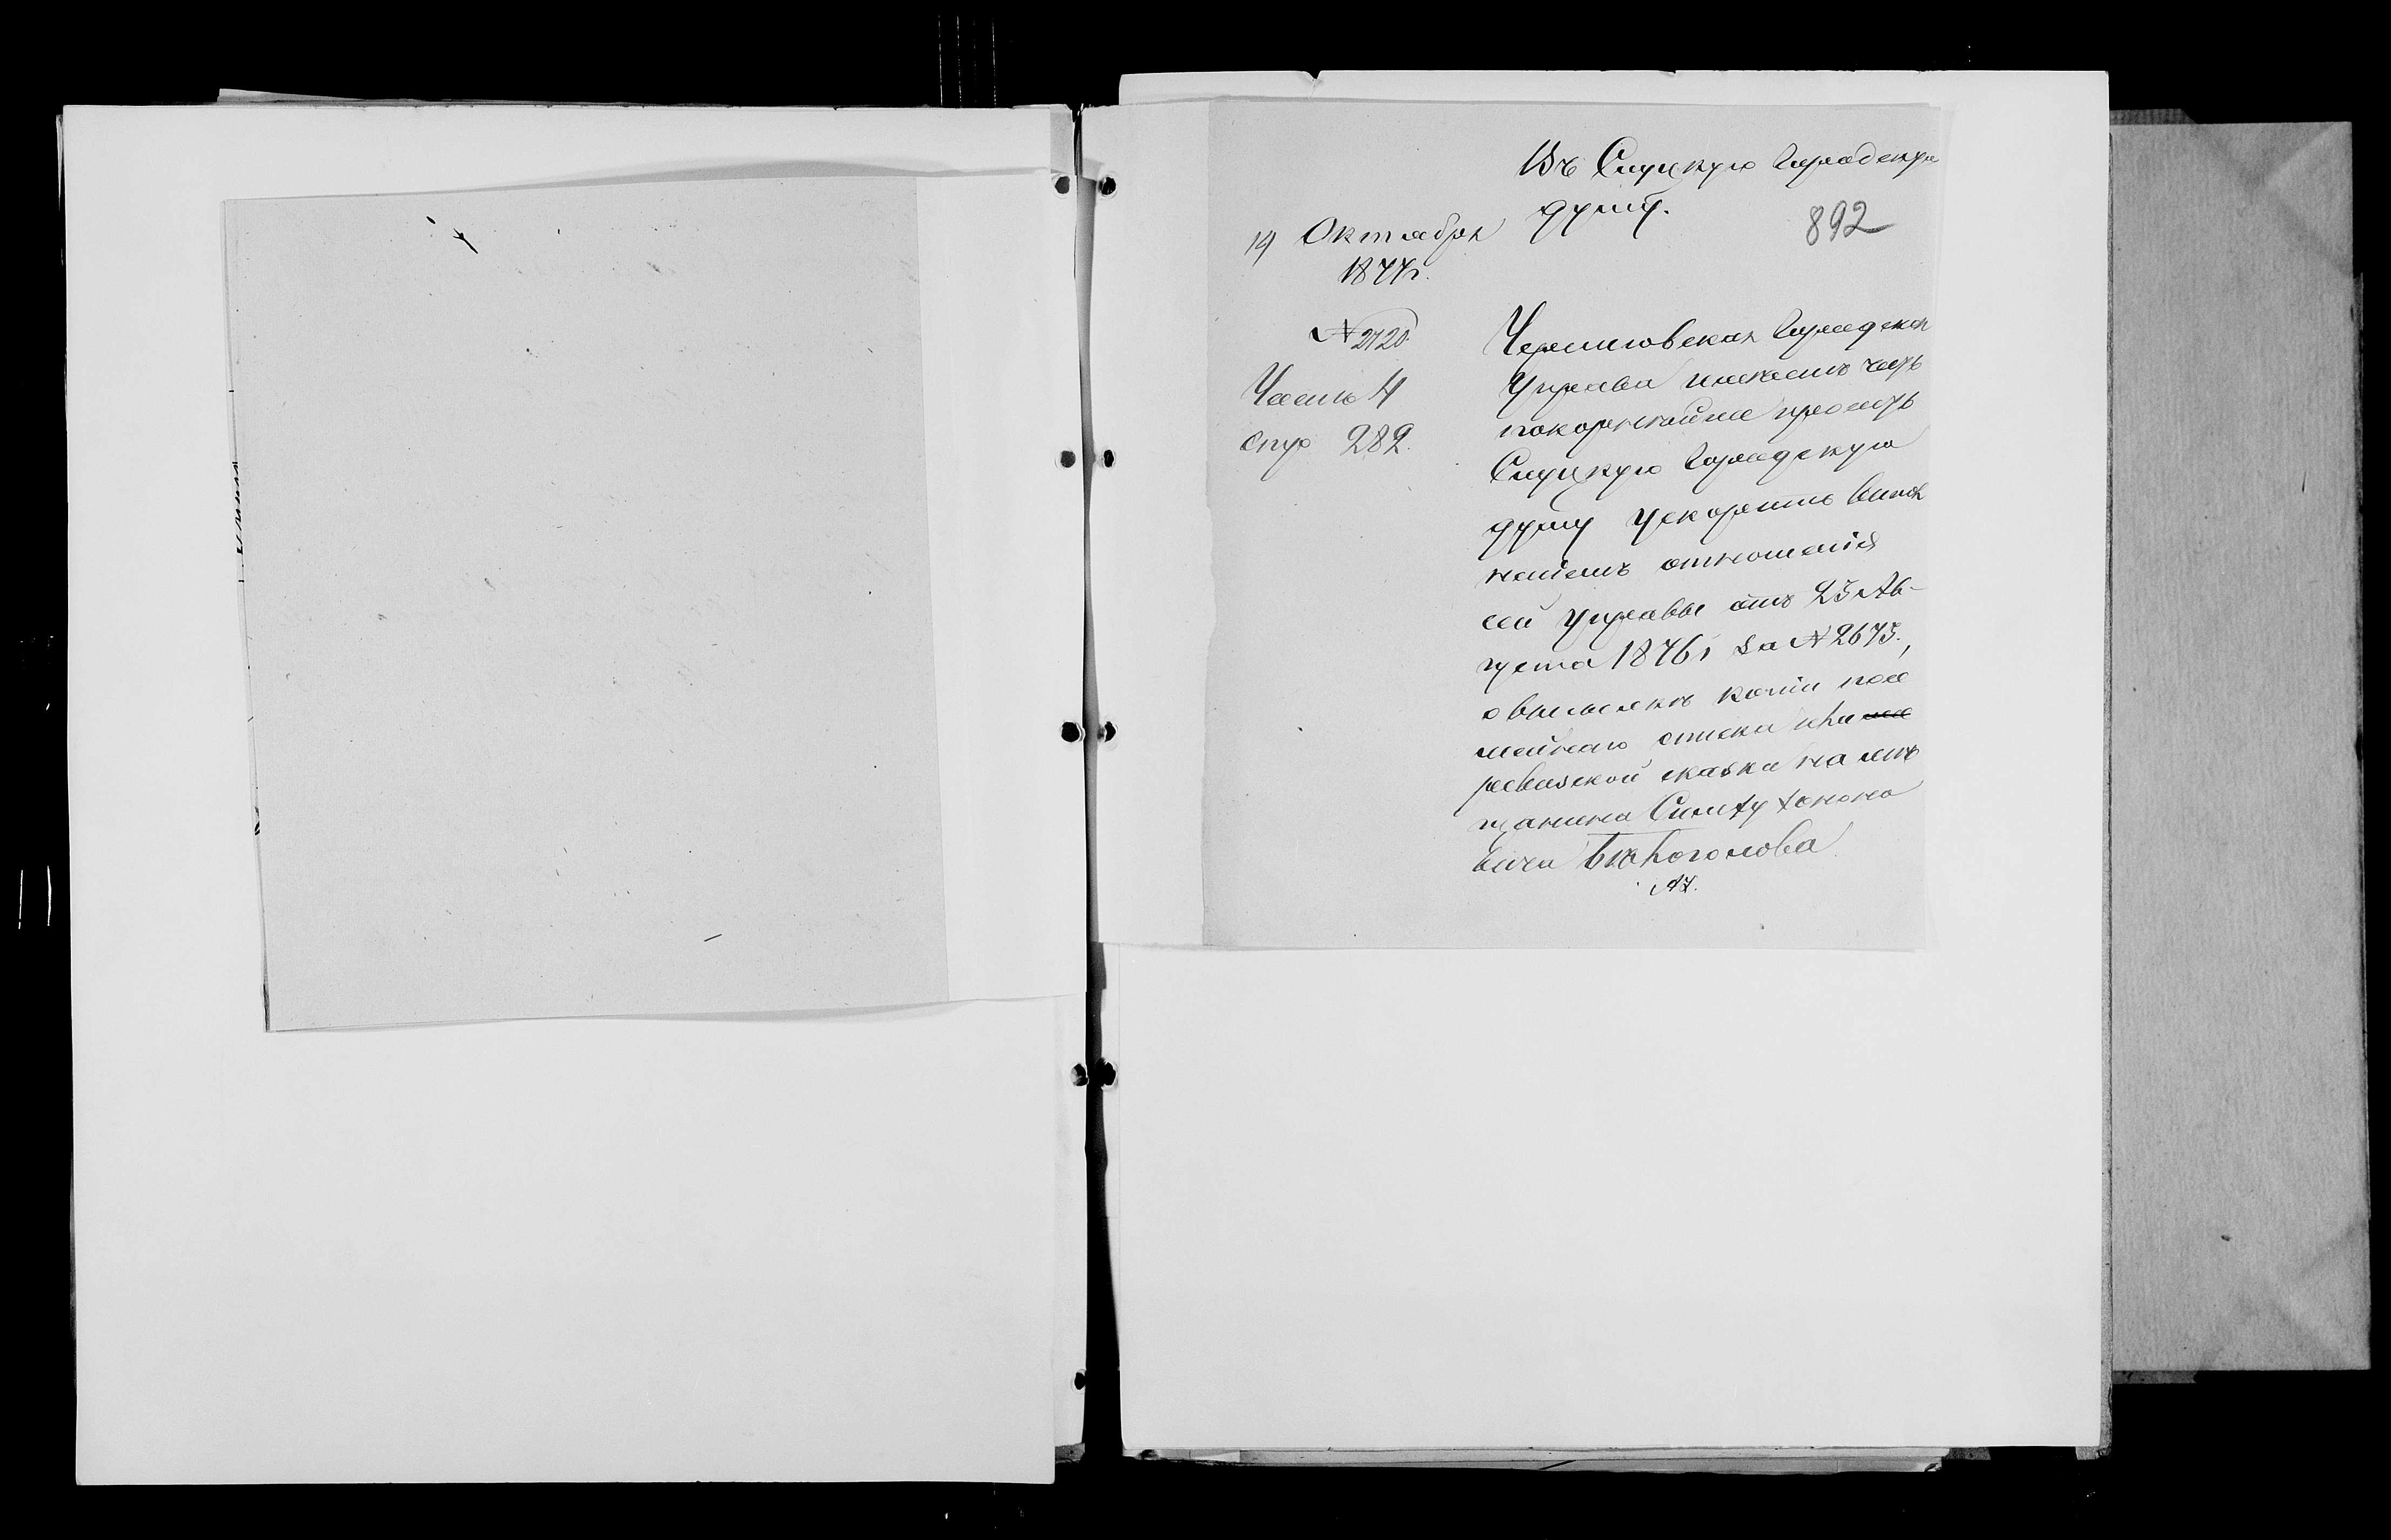 Въ Слуцкую Городскую
думу.
892
19 Октября
1877г.
№ 2720
Часть 4
стр 282.
Черниговская Городская
Управа имѣетъ честь
покорнѣйше просить
Слуцкую Городскую
думу ускорить
отношенія
сей управы отъ 23 Ав-
густа 1876г за № 2675.,
о высылкѣ копіи посе
мейнаго списка или
ревизской сказки на мѣ
щанина Симху
вича Бѣлоголова